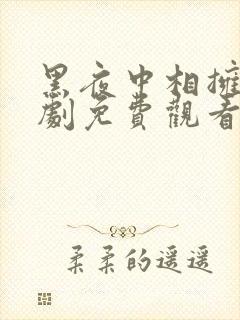 黑夜中相擁
劇免費觀看
柔柔的遥遥